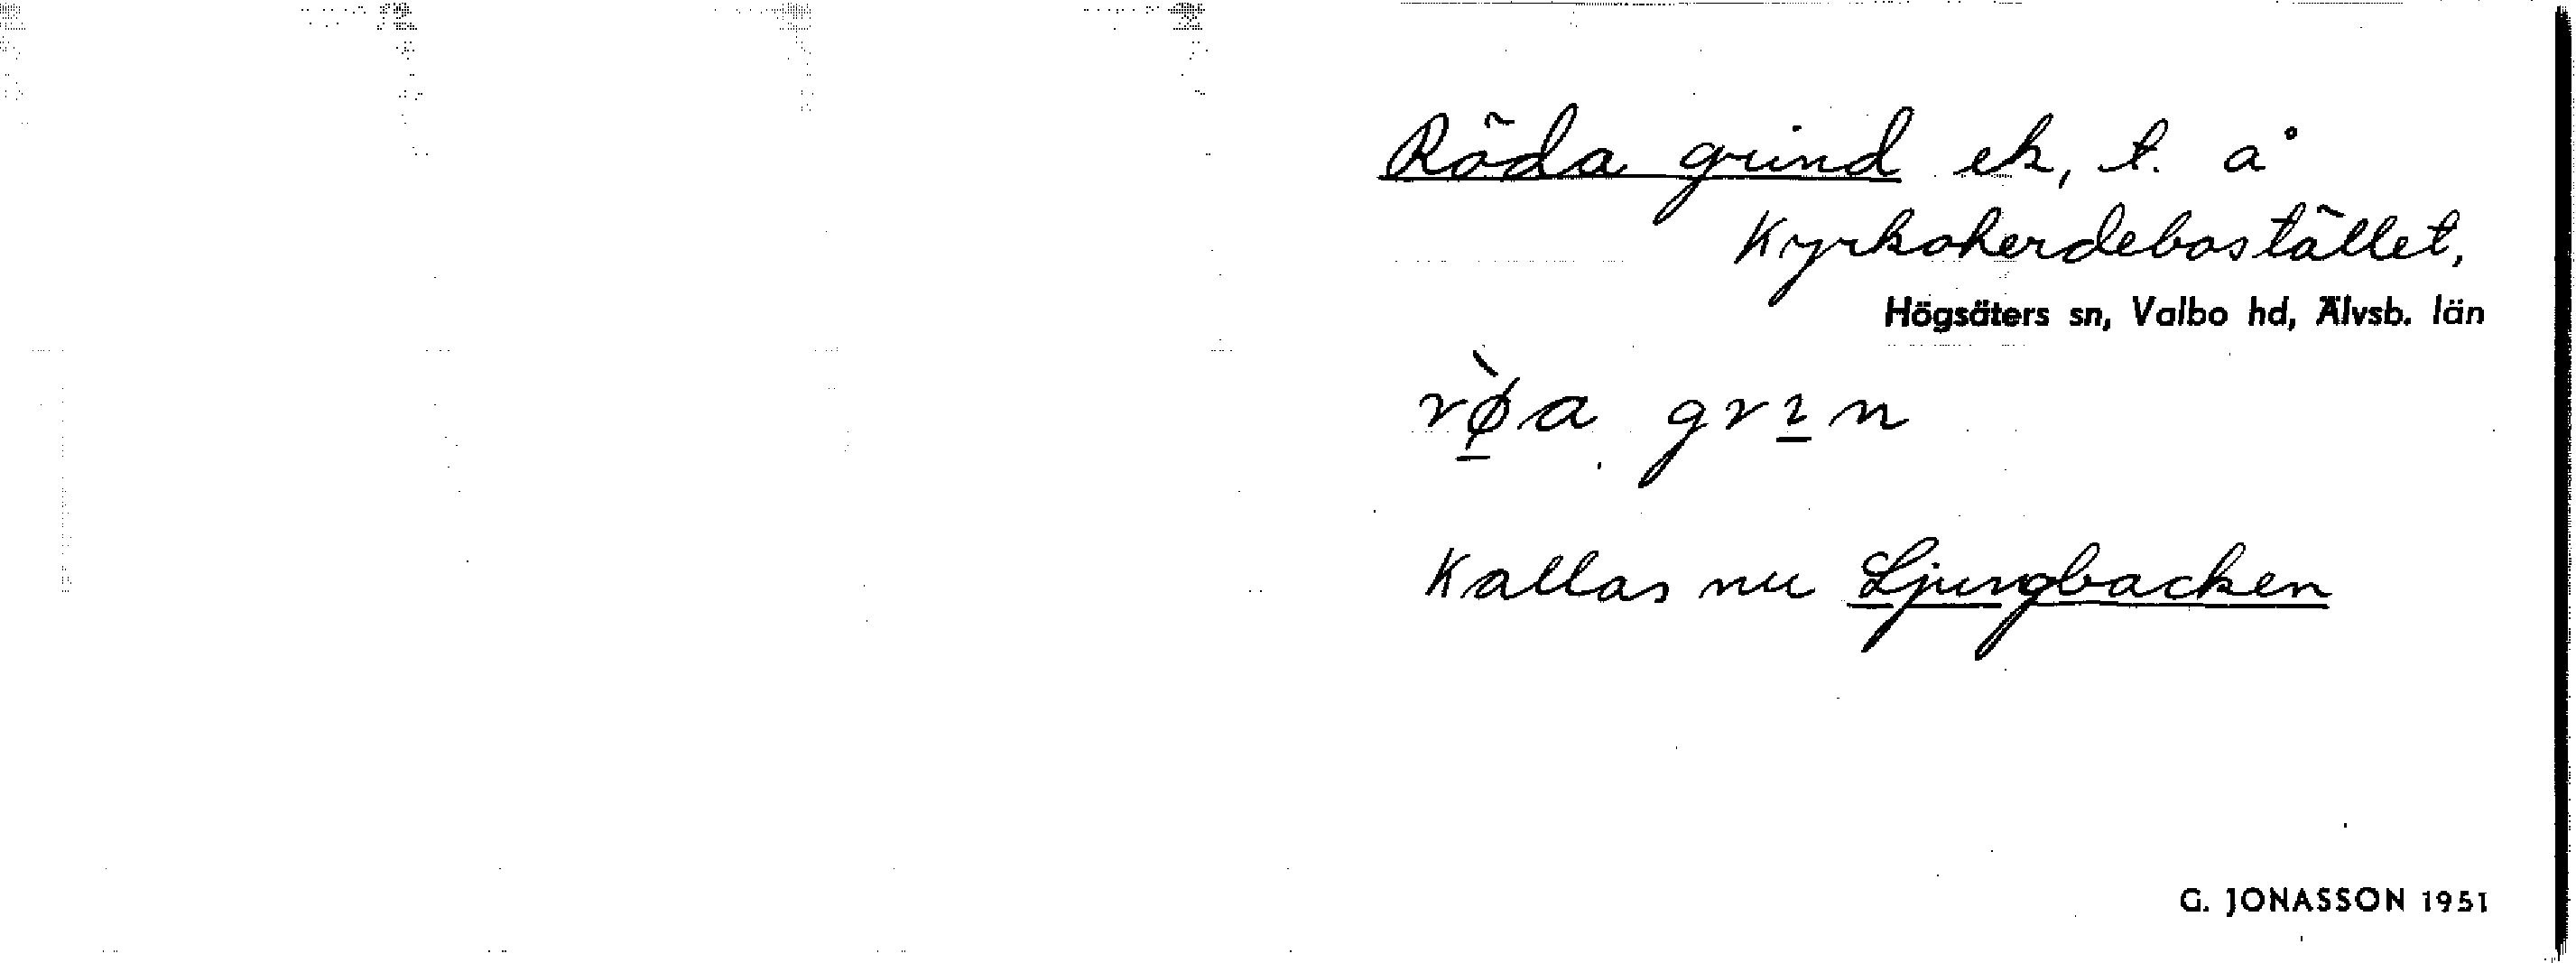 Röda grind ek, t. å
Kyrkoherdebostället,
Högsäters sn, Valbo hd, Älvsb. län
rø̀a grın
Kallas nu Ljungbacken
G. JONASSON 1951